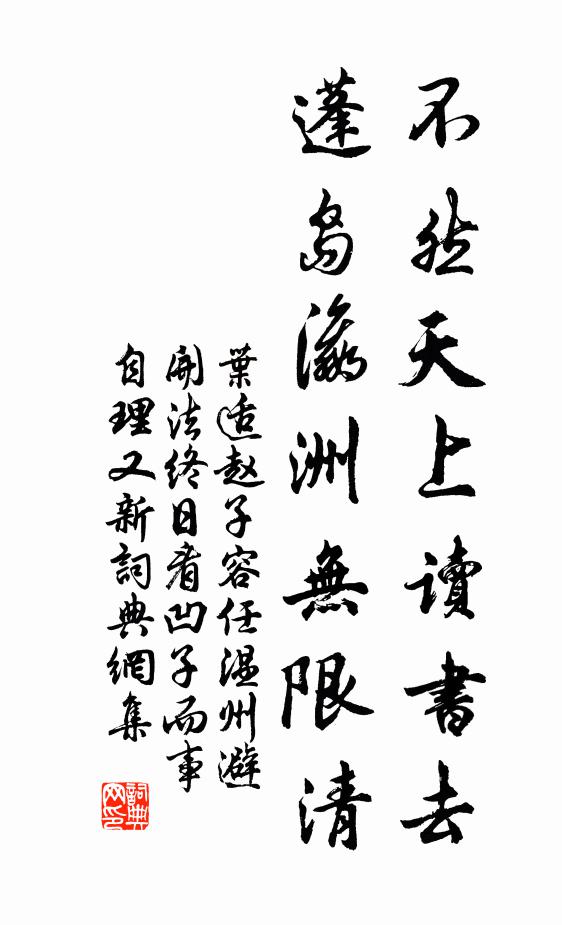 不然天上讀書去
蓬島瀛洲無限清
葉适赵子容任温州避
開法终日看凹子而事
自理又新詞典網集
詞典网印